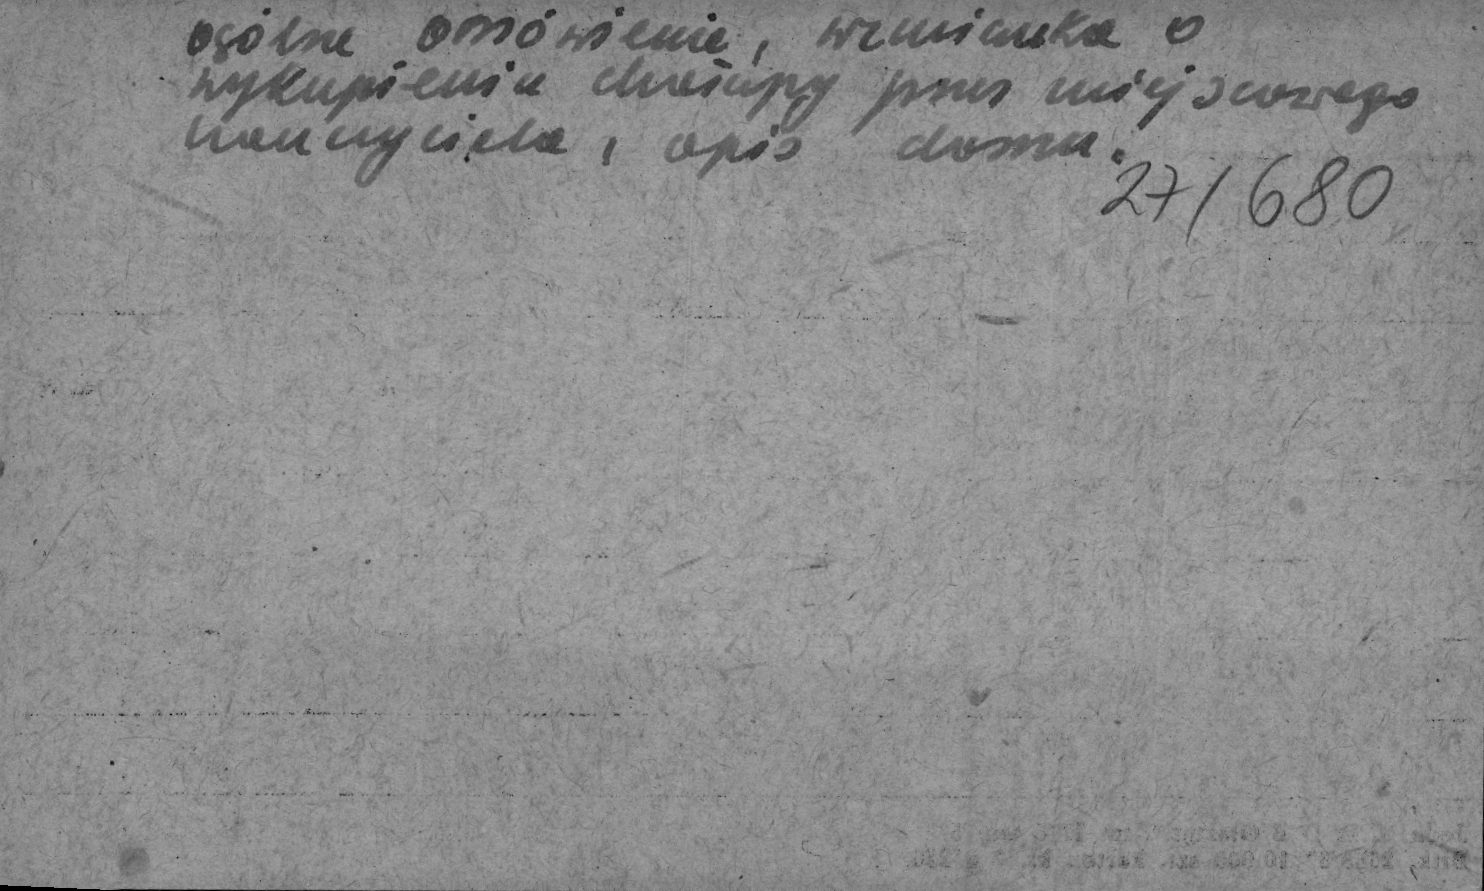 ogólne omówienie, wzmianka o
wykupieniu chałupy przez miejscowego
nauczyciela, opis domu.
27/680